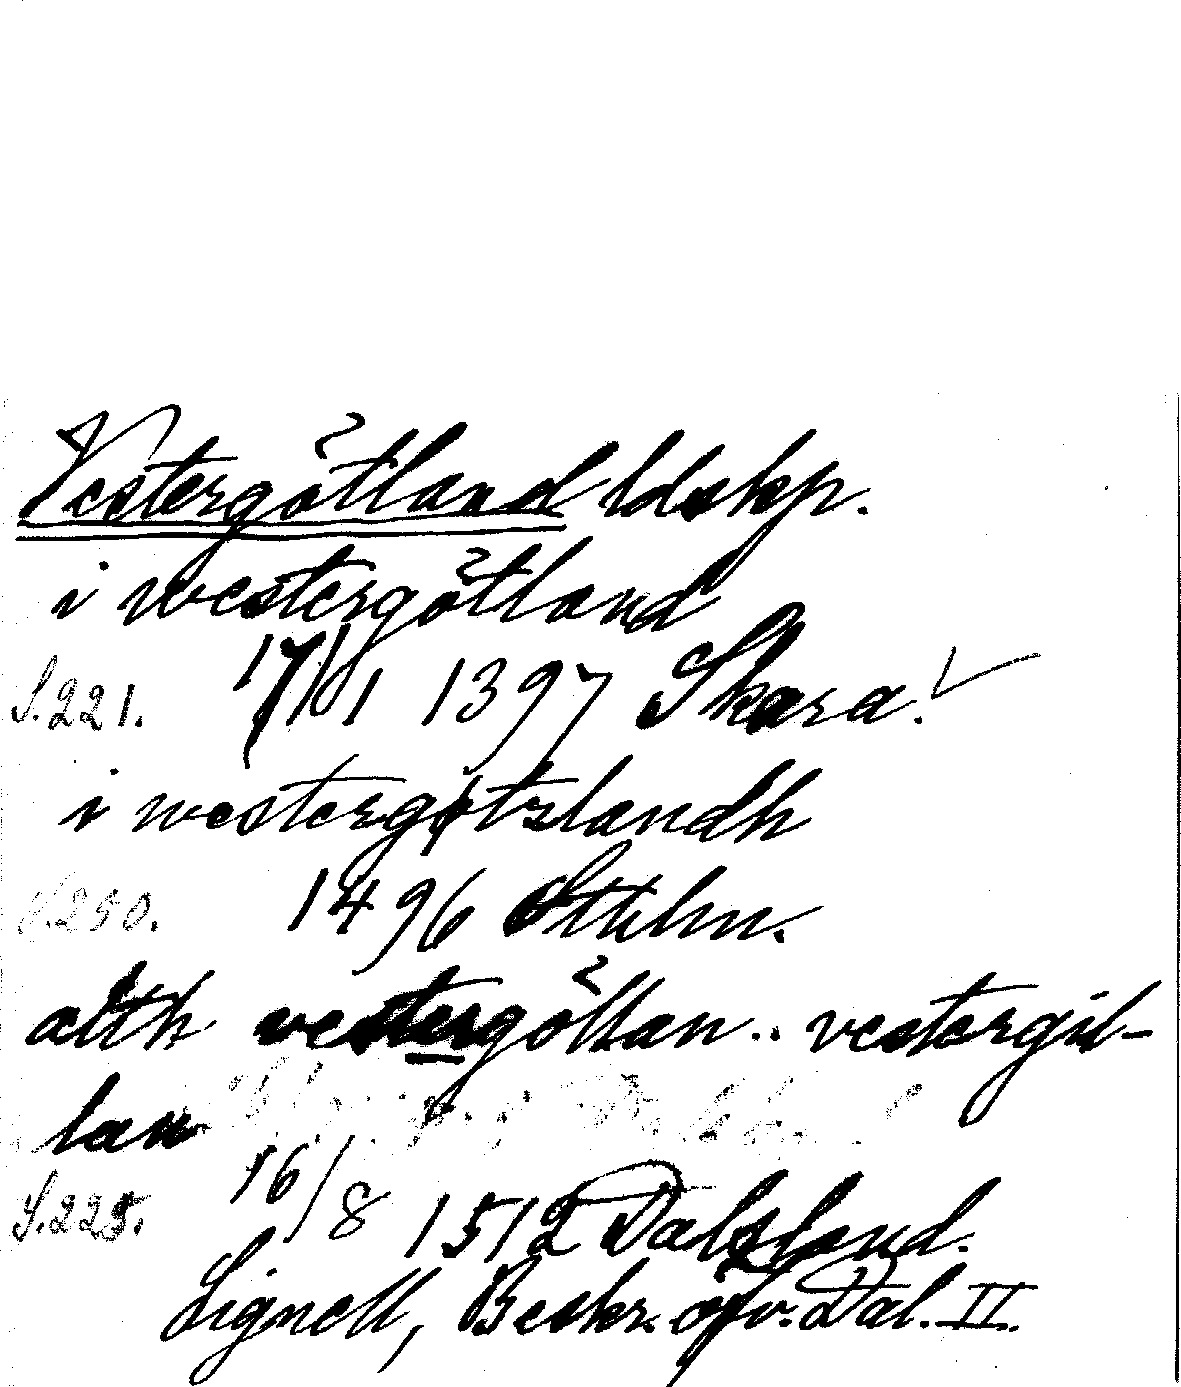 Vestergötland ldskp.
i westergötland
S.221. 17/11 1397 Skara!
i westergøtzlandh
S.250. 1496 Sthlm.
alth vestergöllan .. vestergil-
lan
S.225. 16/8 1512 Dalsland.
Lignell, Beskr. öfv. Dal. II.